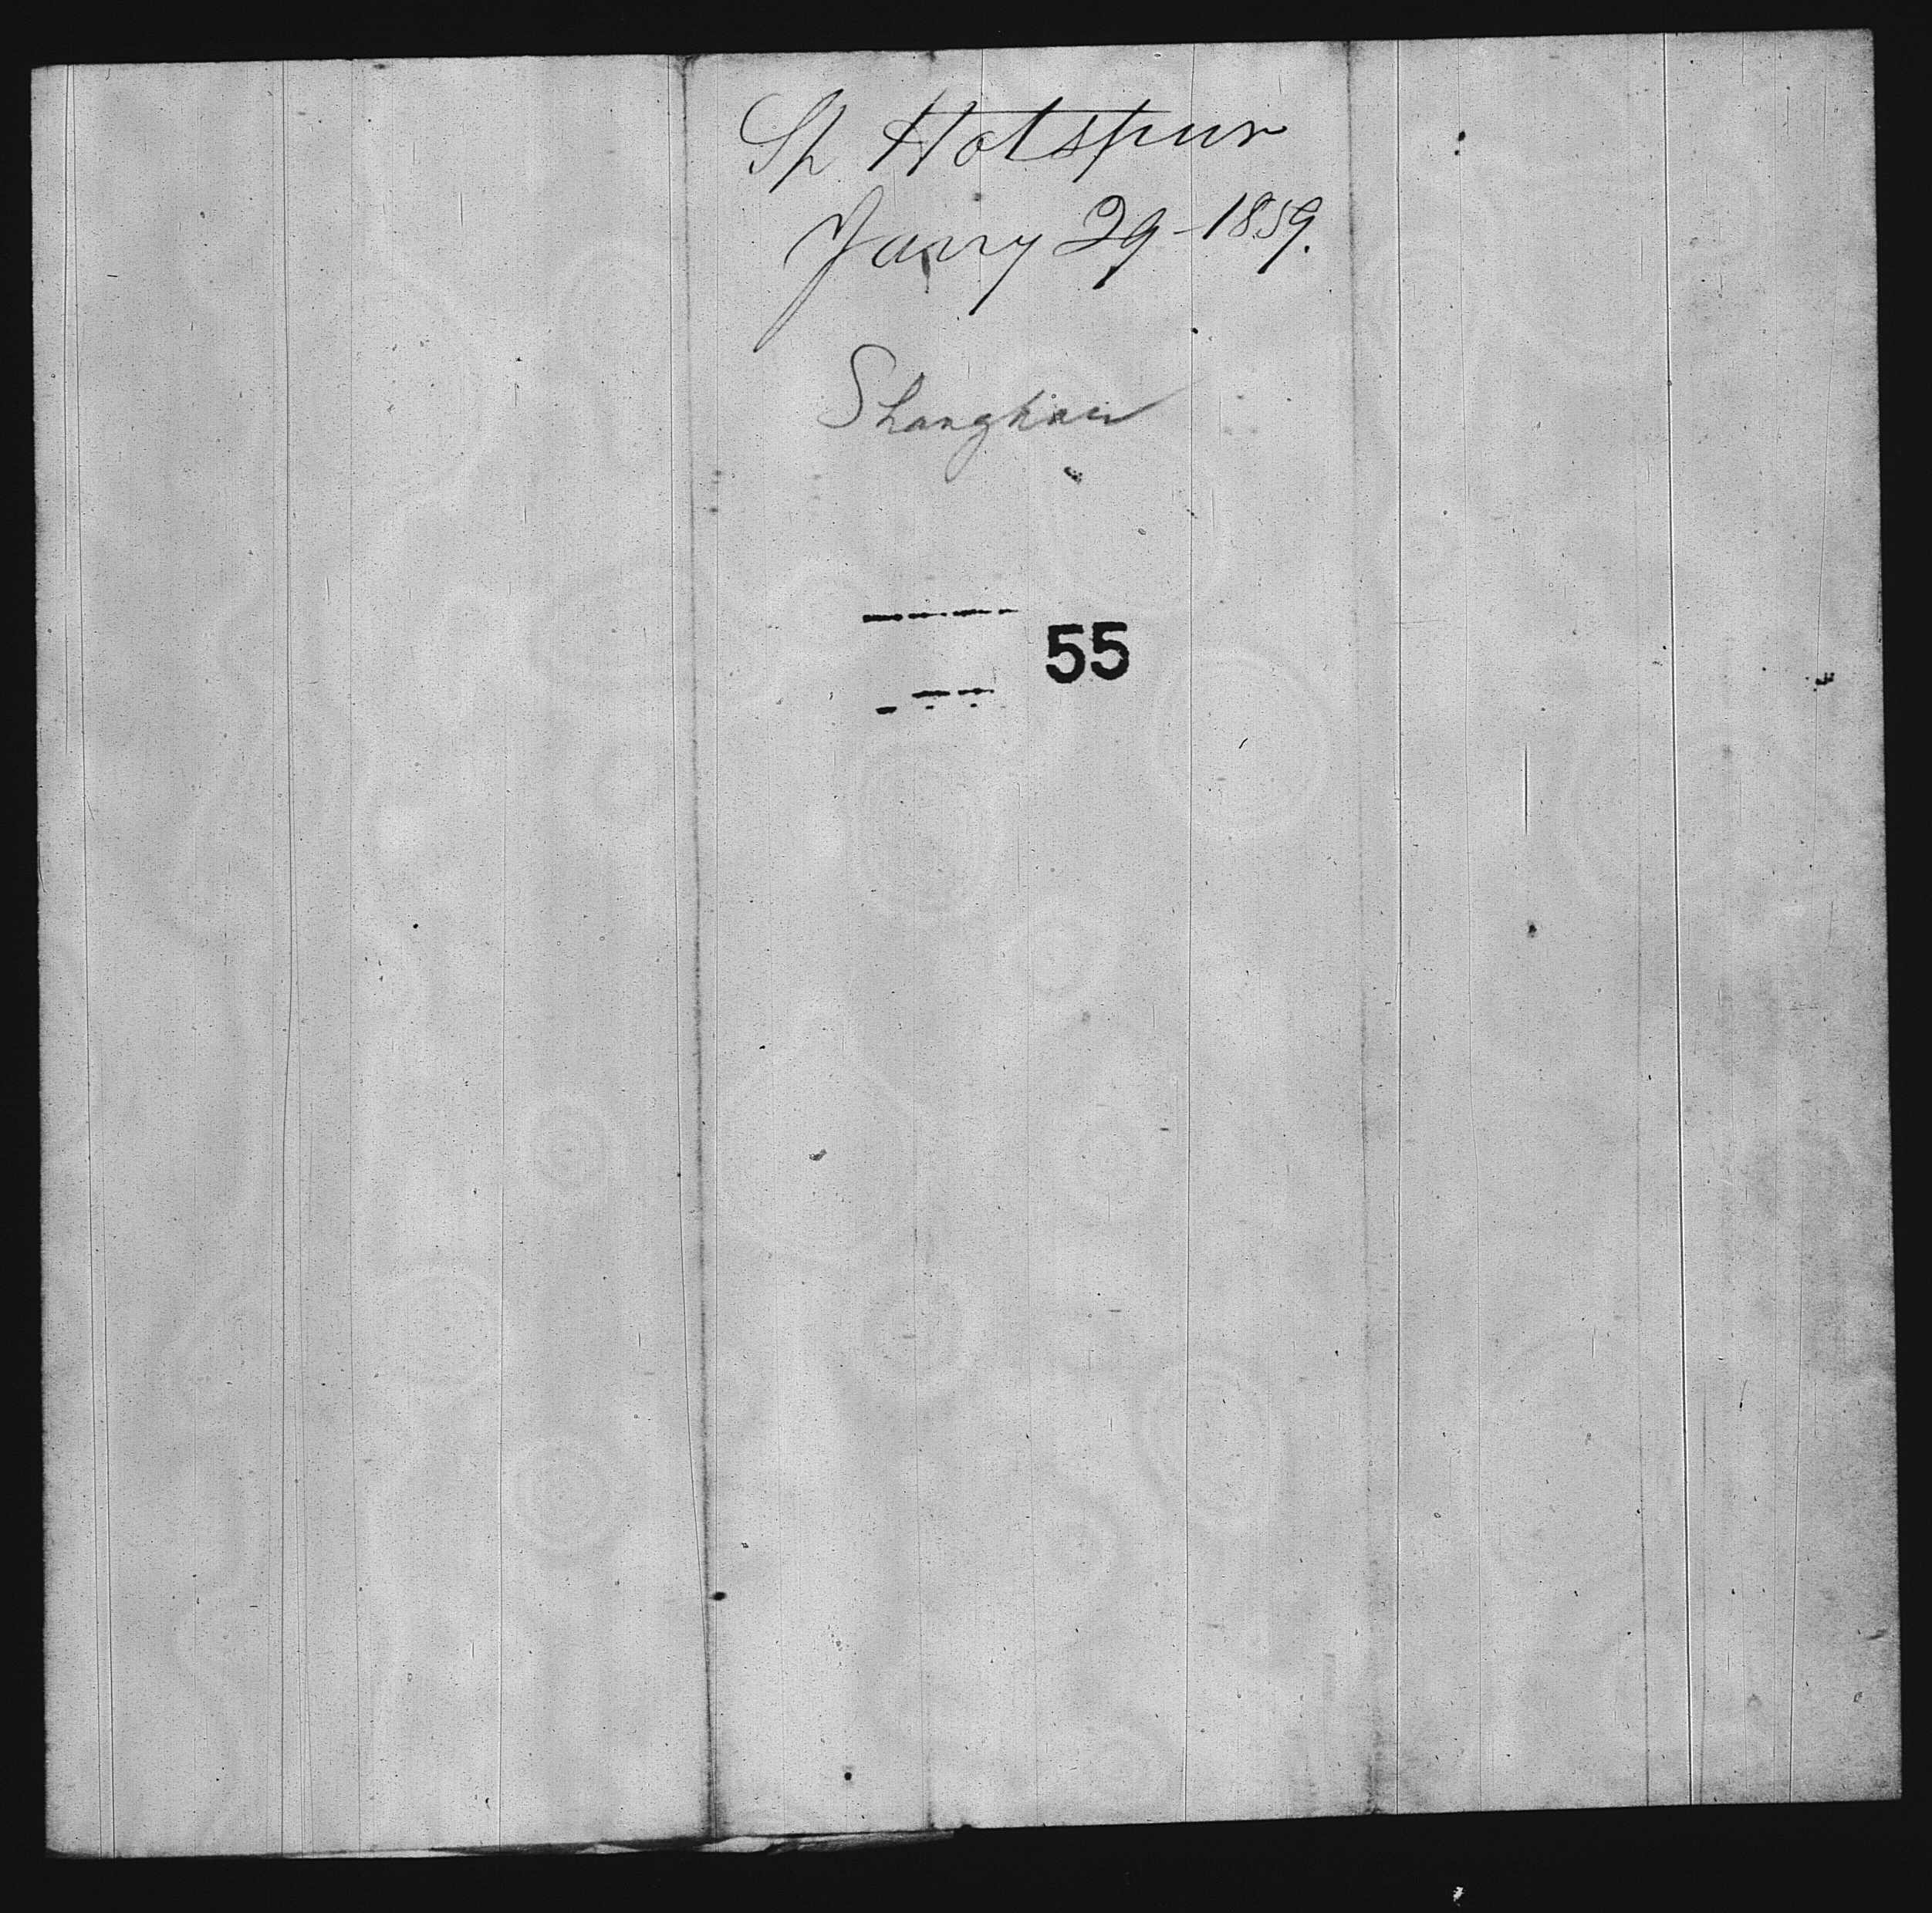 Sh Hotspur
Jany 29 - 1859.
Shanghai
55